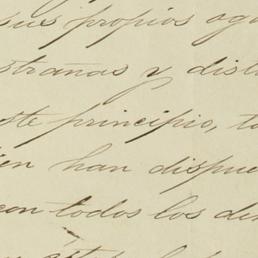 sus propios aga
strañas y dist
ste principio, ta
ien han dispue
con todos los de